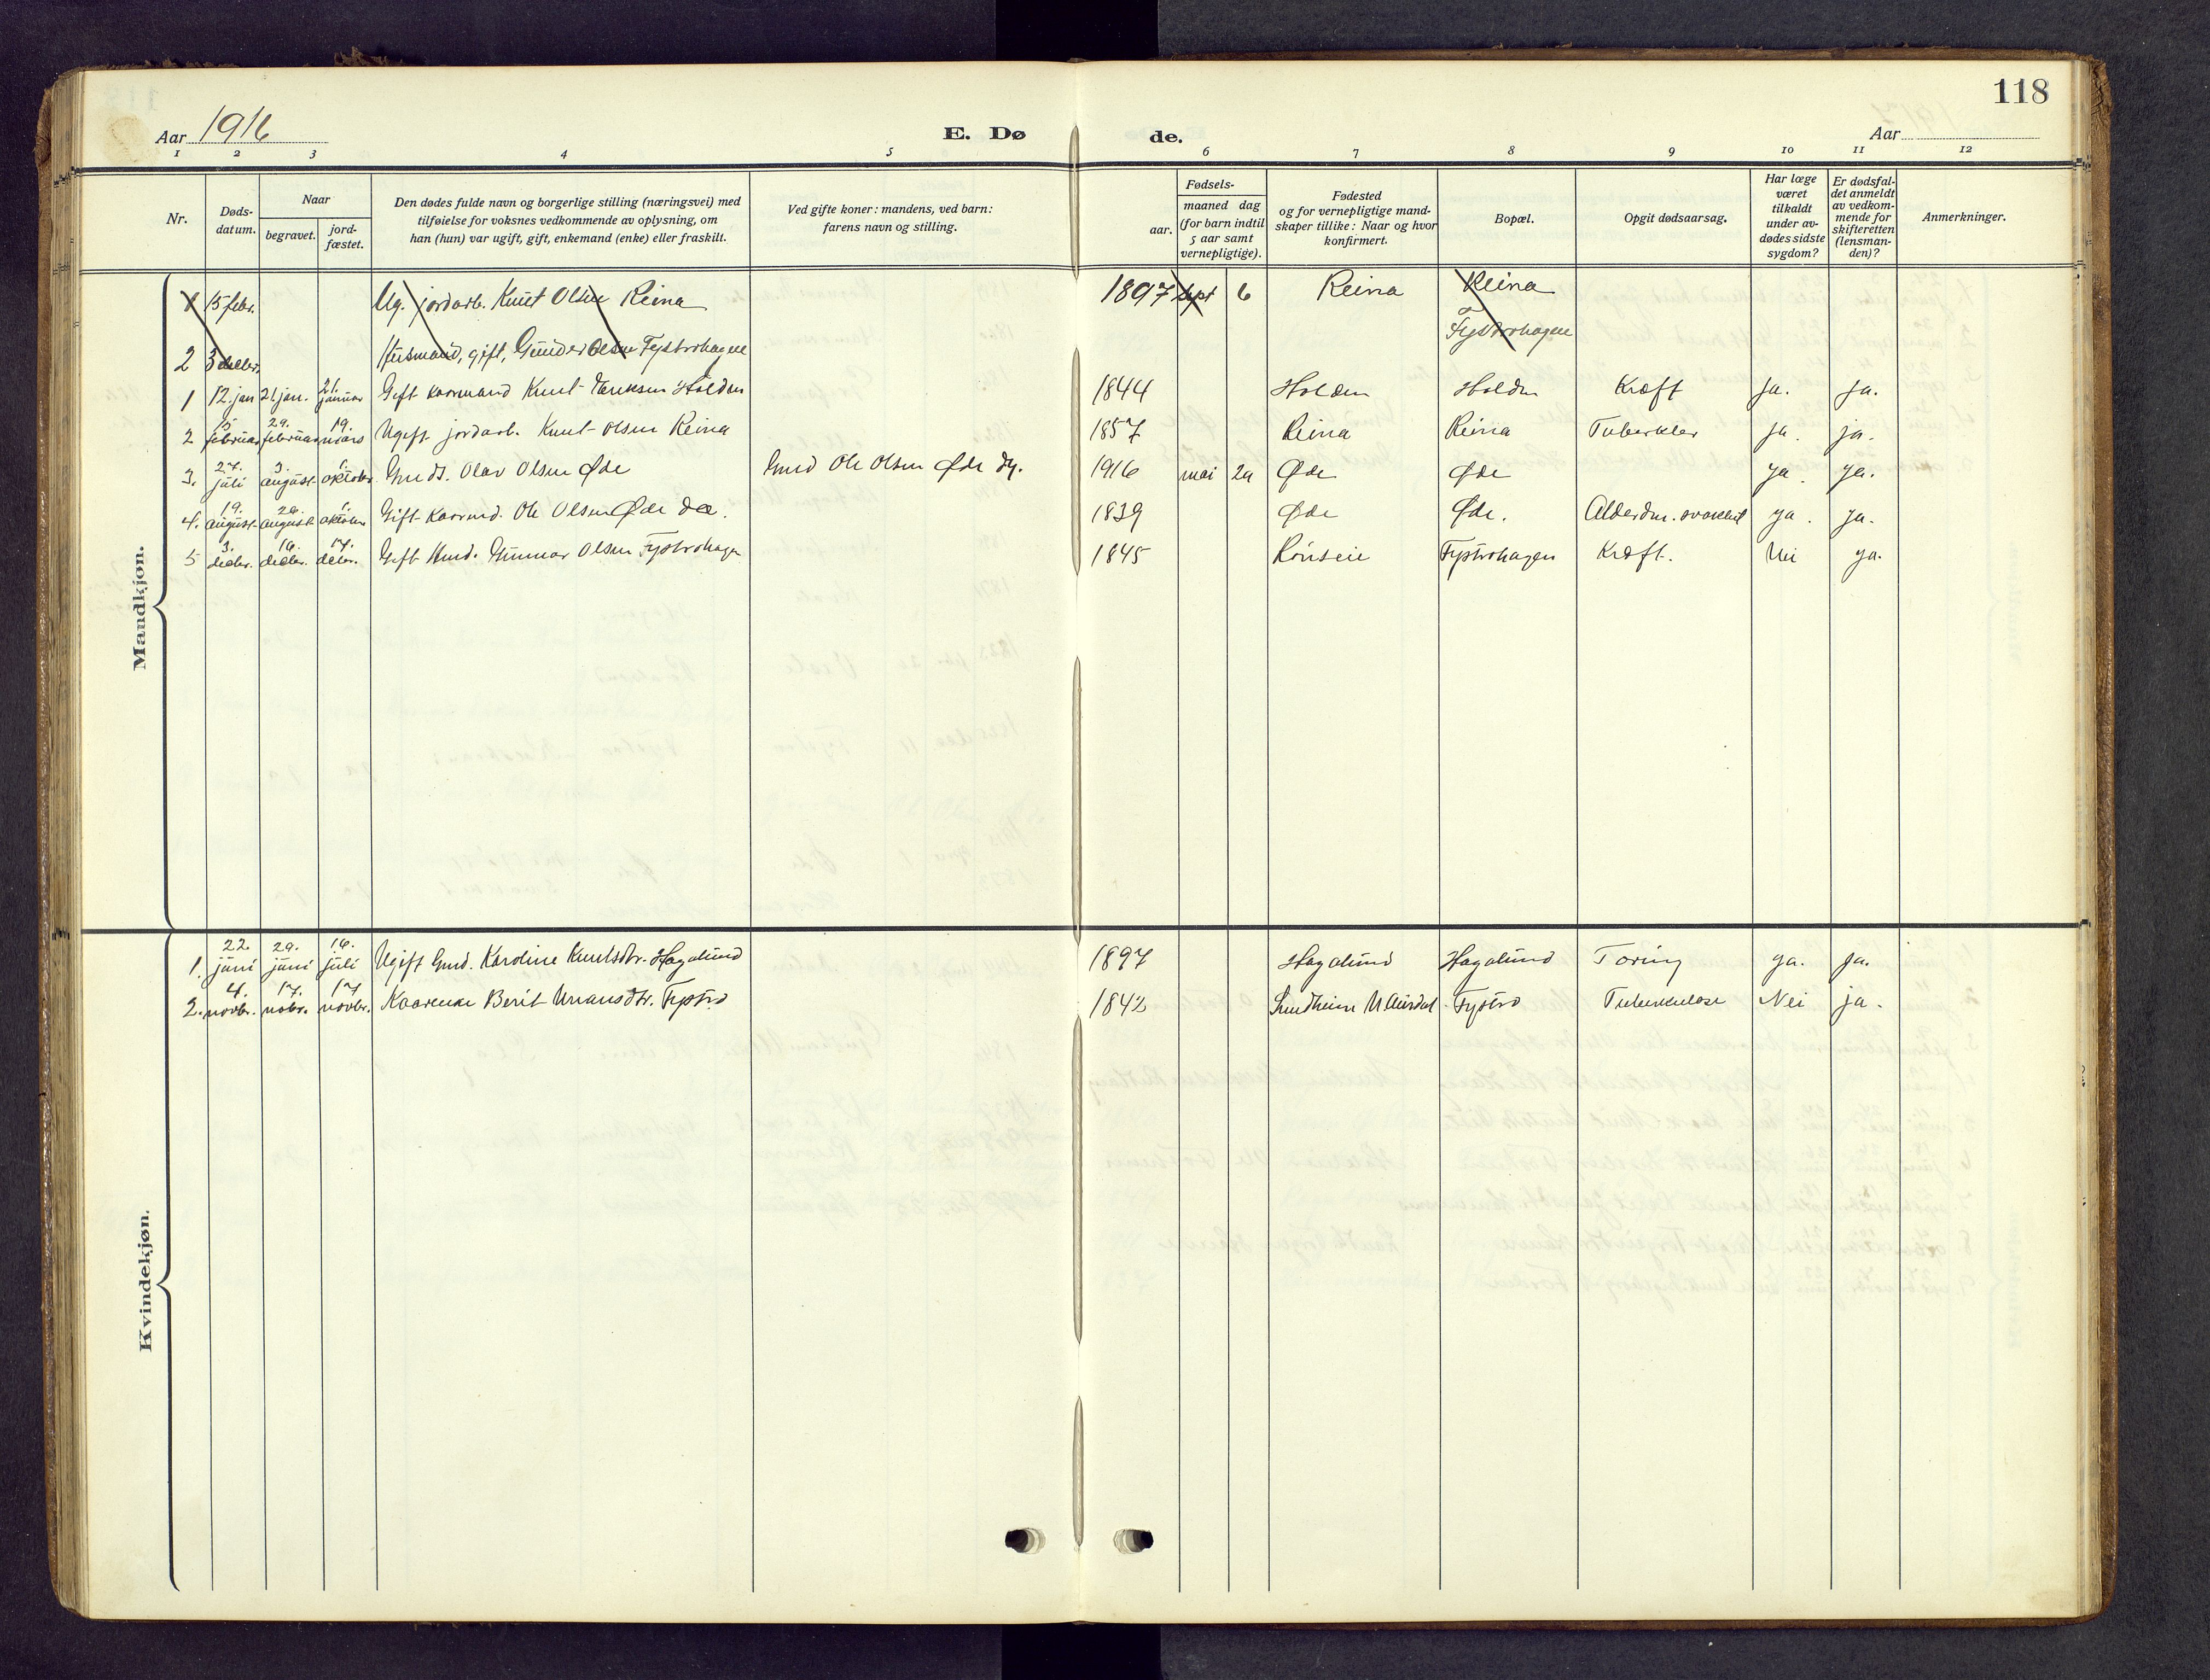 118
Aar 1916
E. Dø de.
Aar
1 2 3 4 5 6 7 8 9 10 11 12
Nr.
Døds-
datum.
Naar
begravet.
jord-
fæstet.
Den dødes fulde navn og borgerlige stilling (næringsvei) med
tilføielse for voksnes vedkommende av oplysning, om
han (hun) var ugift, gift, enkemand (enke) eller fraskilt.
Ved gifte koner: mandens, ved barn:
farens navn og stilling.
Fødsels-
aar. maaned dag
(for barn indtil
5 aar samt
vernepligtige).
Fødested
og for vernepligtige mand-
skaper tillike: Naar og hvor
konfirmert.
Bopæl.
Opgit dødsaarsag.
Har læge
været
tilkaldt
under av-
dødes sidste
sygdom?
Er dødsfal-
det anmeldt
av vedkom-
mende for
skifteretten
(lensman-
den)?
Anmerkninger.
Mandkjøn.
1 15 febr. Ug. jordarb. Knut Olsen Reina 1897 sept 6 Reina Reina
2 3 decbr. Husmand, gift, Gunder Olsen Fystrohagen Fystrohagen
1 12. jan 21. jan. 21. januar Gift kaarmand Knut Eriksen Holden 1844 Holden Holden Kræft ja. ja.
2 15. februar 29. februar 19. mars Ugift jordarb. Knut Olsen Reina 1857 Reina Reina Tuberkler ja. ja.
3. 27. juli 3. august oktober Gmds. Olav Olsen Øde Gmd Ole Olsen Øde 1916 mai 29 Øde Øde ja. ja.
4. 19. august 26. august oktober Gift kaarmd. Ole Olsen Øde 1839 Øde Øde. Alderdm. svakhet ja. ja.
5 3. decbr. 16. decbr. 17. decbr. Gift Hmd. Gunnar Olsen Fystrohagen 1845 Rønseie Fystrohagen Kræft. Nei ja.
Kvindekjøn.
1. 22. juni 29. juni 16. juli Ugift Gmd. Karoline Knutsdtr. Hagalund 1897 Hagalund Hagalund Tæring ja. ja.
2. 4. novbr. 17. nobr. 17 novbr. Kaarenke Berit Knutsdtr. Fystro 1842 Sundheim N Aurdal Fystro Tuberkulose Nei ja.